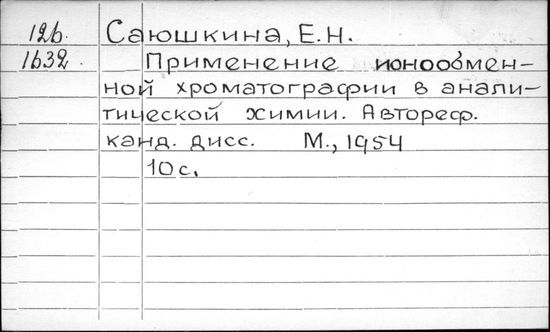 12б. Саюшкина, Е.Н.
1632. Применение ионообмен-
ной хроматографии в анали-
тической химии. Автореф.
канд. дисс. М., 1954
10 с.